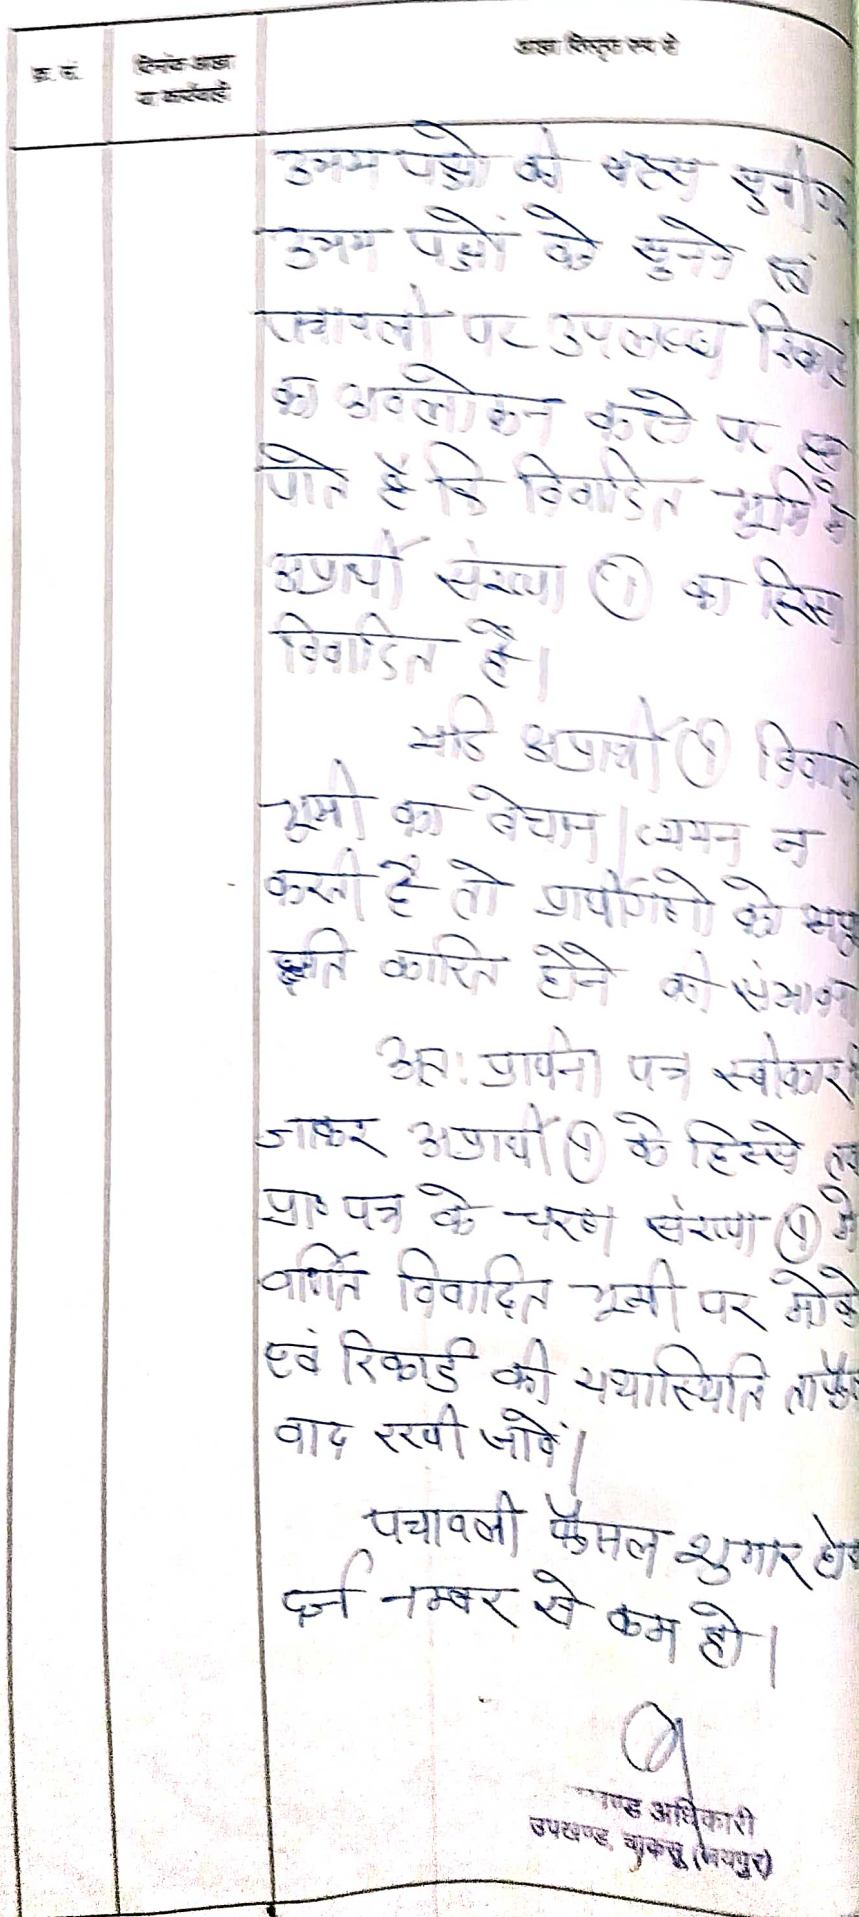 क्र. सं.
दिनांक आज्ञा
या कार्यवाही
आज्ञा विस्तृत रूप से
उभय पक्षो की बहस सुनी गई
उभय पक्षों के सुनने एवं
पत्रावली पर उपलब्ध रिकार्ड
का अवलोकन करने पर हम
पाते है कि विवादित भूमि में
अप्रार्थी संख्या ① का हिस्सा
विवादित है।
यदि अप्रार्थी ① विवादित
भूमी का बेचान | व्ययन न
करती है तो प्रार्थीगणो को
क्षति कारित होने की संभावना
अतः प्रार्थना पत्र स्वीकार
जाकर अप्रार्थी ① के हिस्से
प्रा. पत्र के चरण संख्या ① में
वर्णित विवादित भूमी पर मोके
एवं रिकार्ड की यथास्थिति ताफैसला
वाद रखी जावें।
पत्रावली फैसल शुमार होकर
दर्ज नम्बर से कम हो।
ण्ड अधिकारी
उपखण्ड, चाकसू (जयपुर)